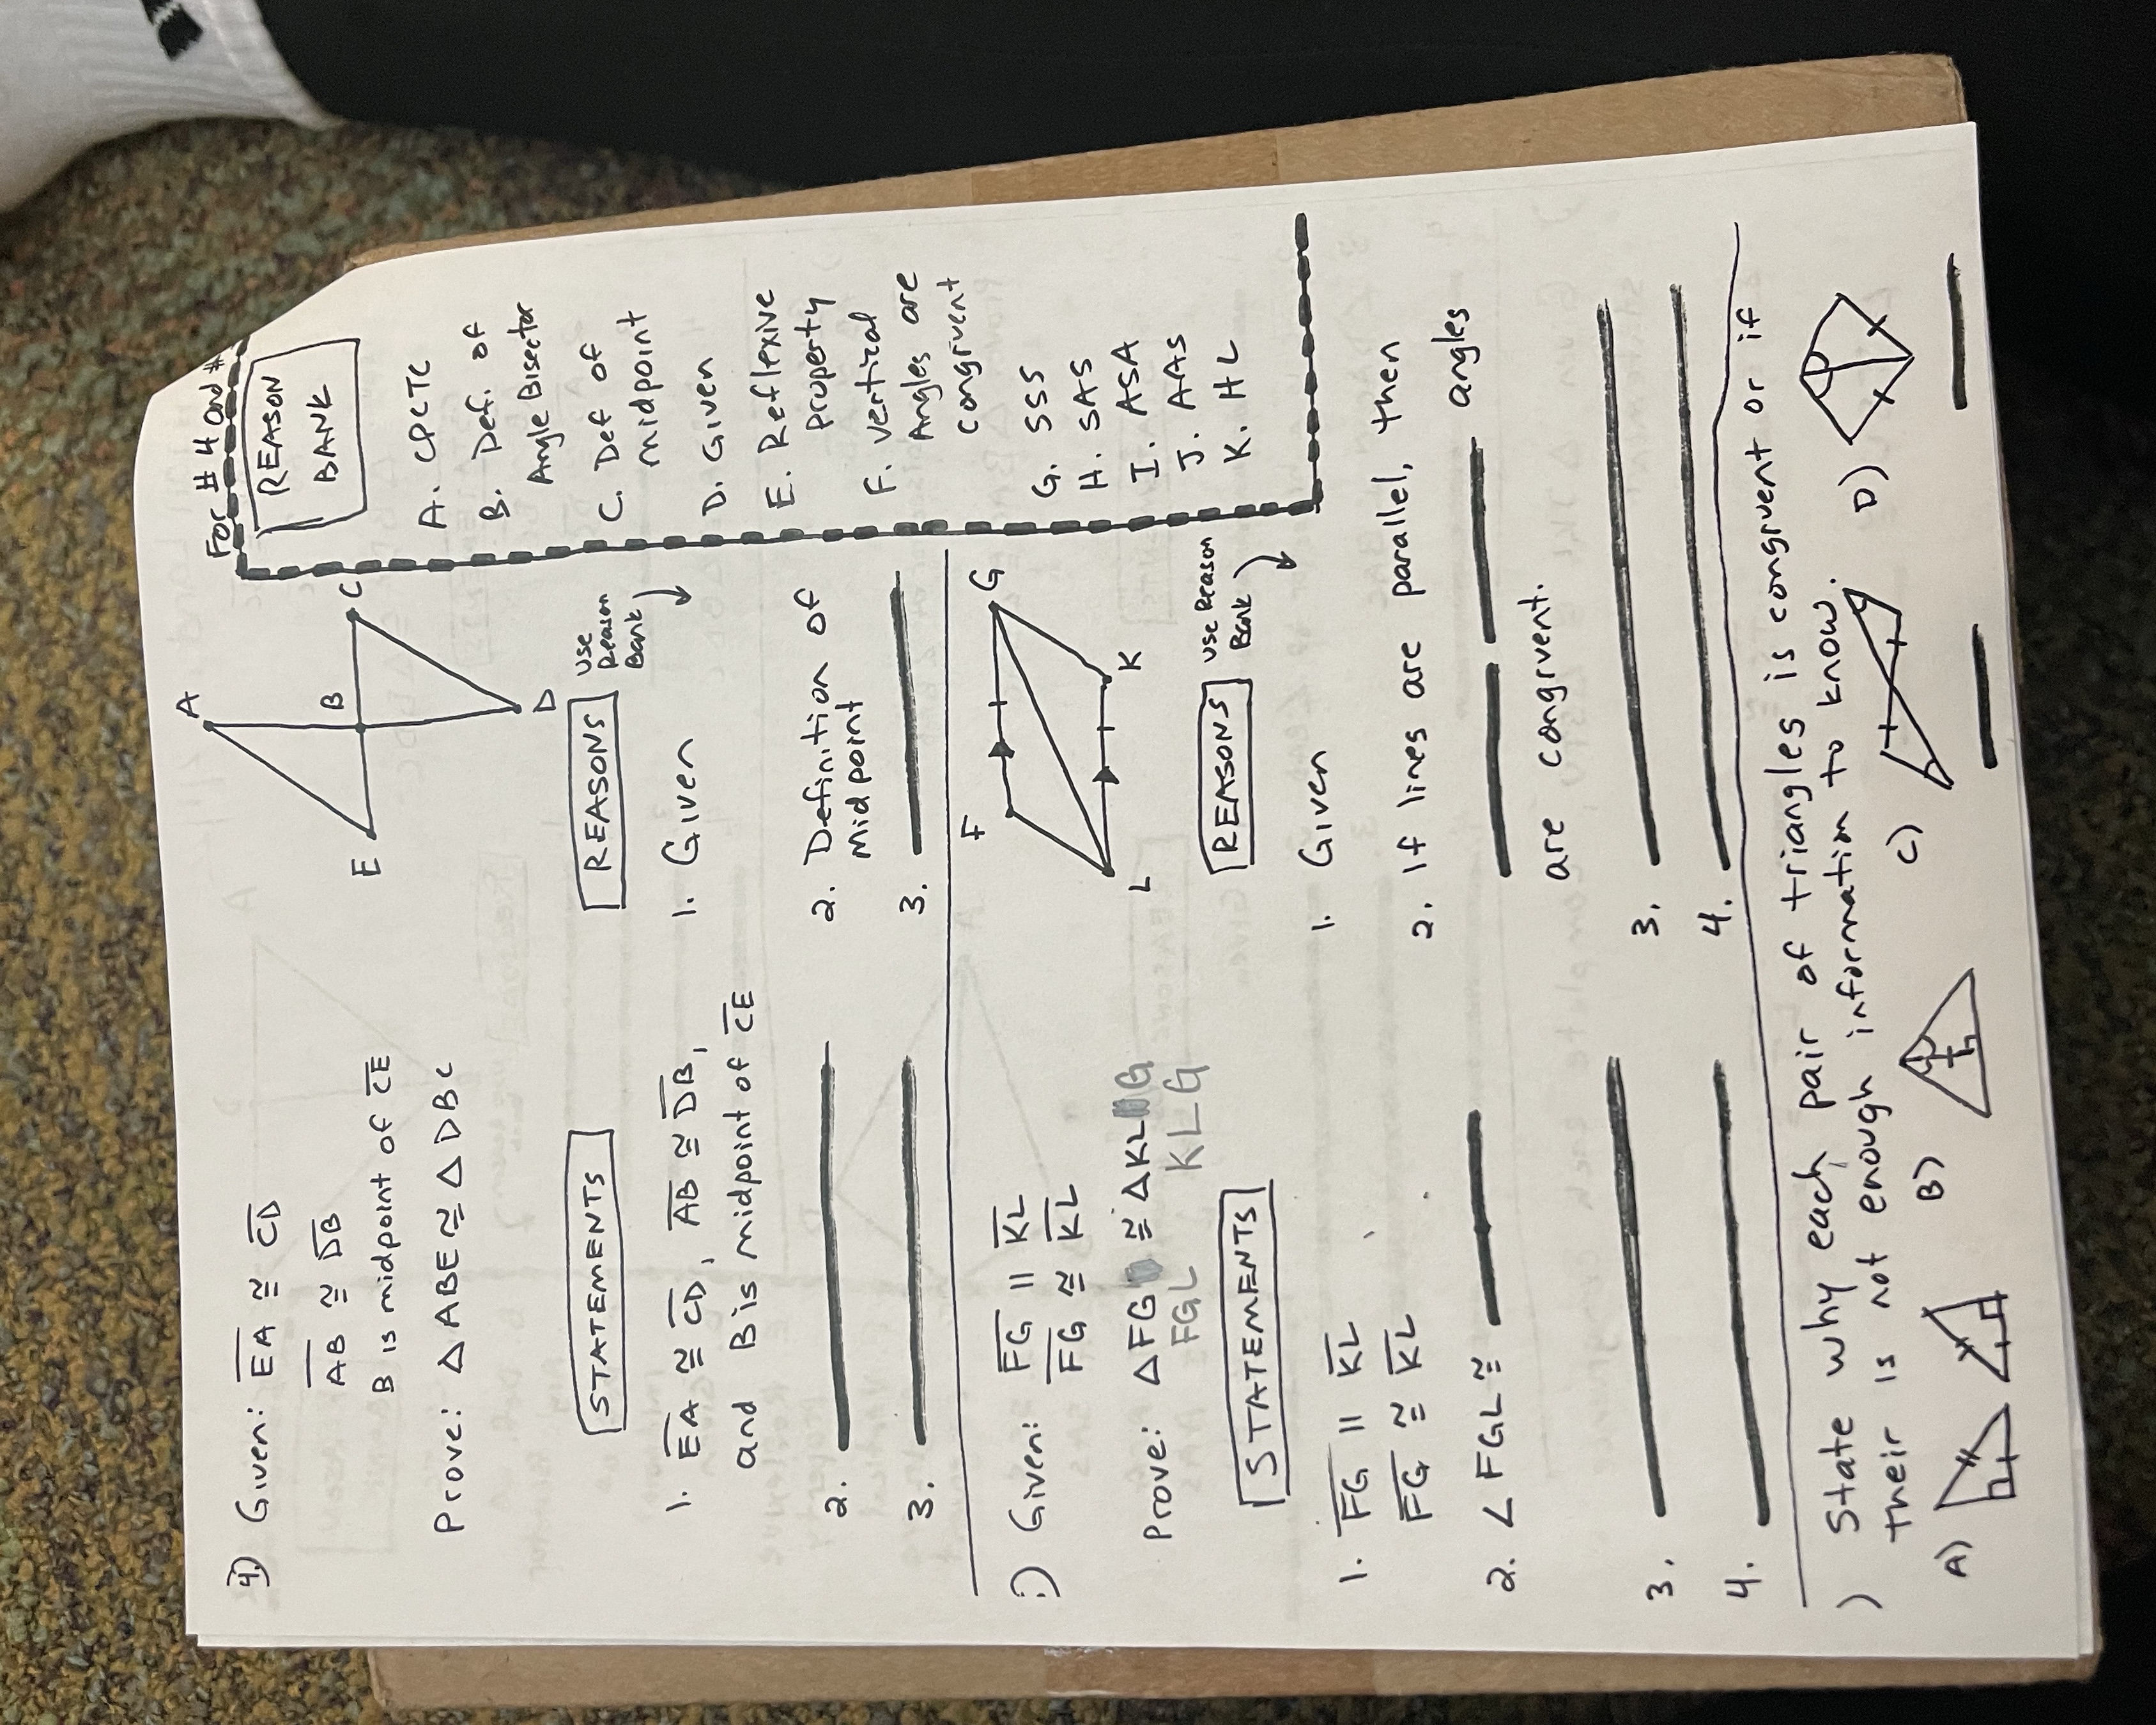 4) Given: EA ≅ CD
AB ≅ DB
B is midpoint of CE
Prove: △ABE ≅ △DBC
A
B
C
E
D
For #4 and #
REASON
BANK
A. CPCTC
B. Def. of
Angle Bisector
C. Def of
midpoint
D. Given
E. Reflexive
property
F. vertical
Angles are
congruent
G. SSS
H. SAS
I. ASA
J. AAS
K. HL
STATEMENTS
REASONS
use
Reason
Bank
1. EA ≅ CD, AB ≅ DB,
and B is midpoint of CE
1. Given
2.
2. Definition of
Midpoint
3.
3.
) Given: FG || KL
FG ≅ KL
Prove: △FG ≅ △KL G
FGL KLG
F
G
L
K
STATEMENTS
REASONS
use Reason
Bank
1. FG || KL
FG ≅ KL
1. Given
2. ∠FGL ≅
2. If lines are parallel, then
angles
are congruent.
3.
3.
4.
4.
) State why each pair of triangles is congruent or if
their is not enough information to know.
A)
B)
C)
D)